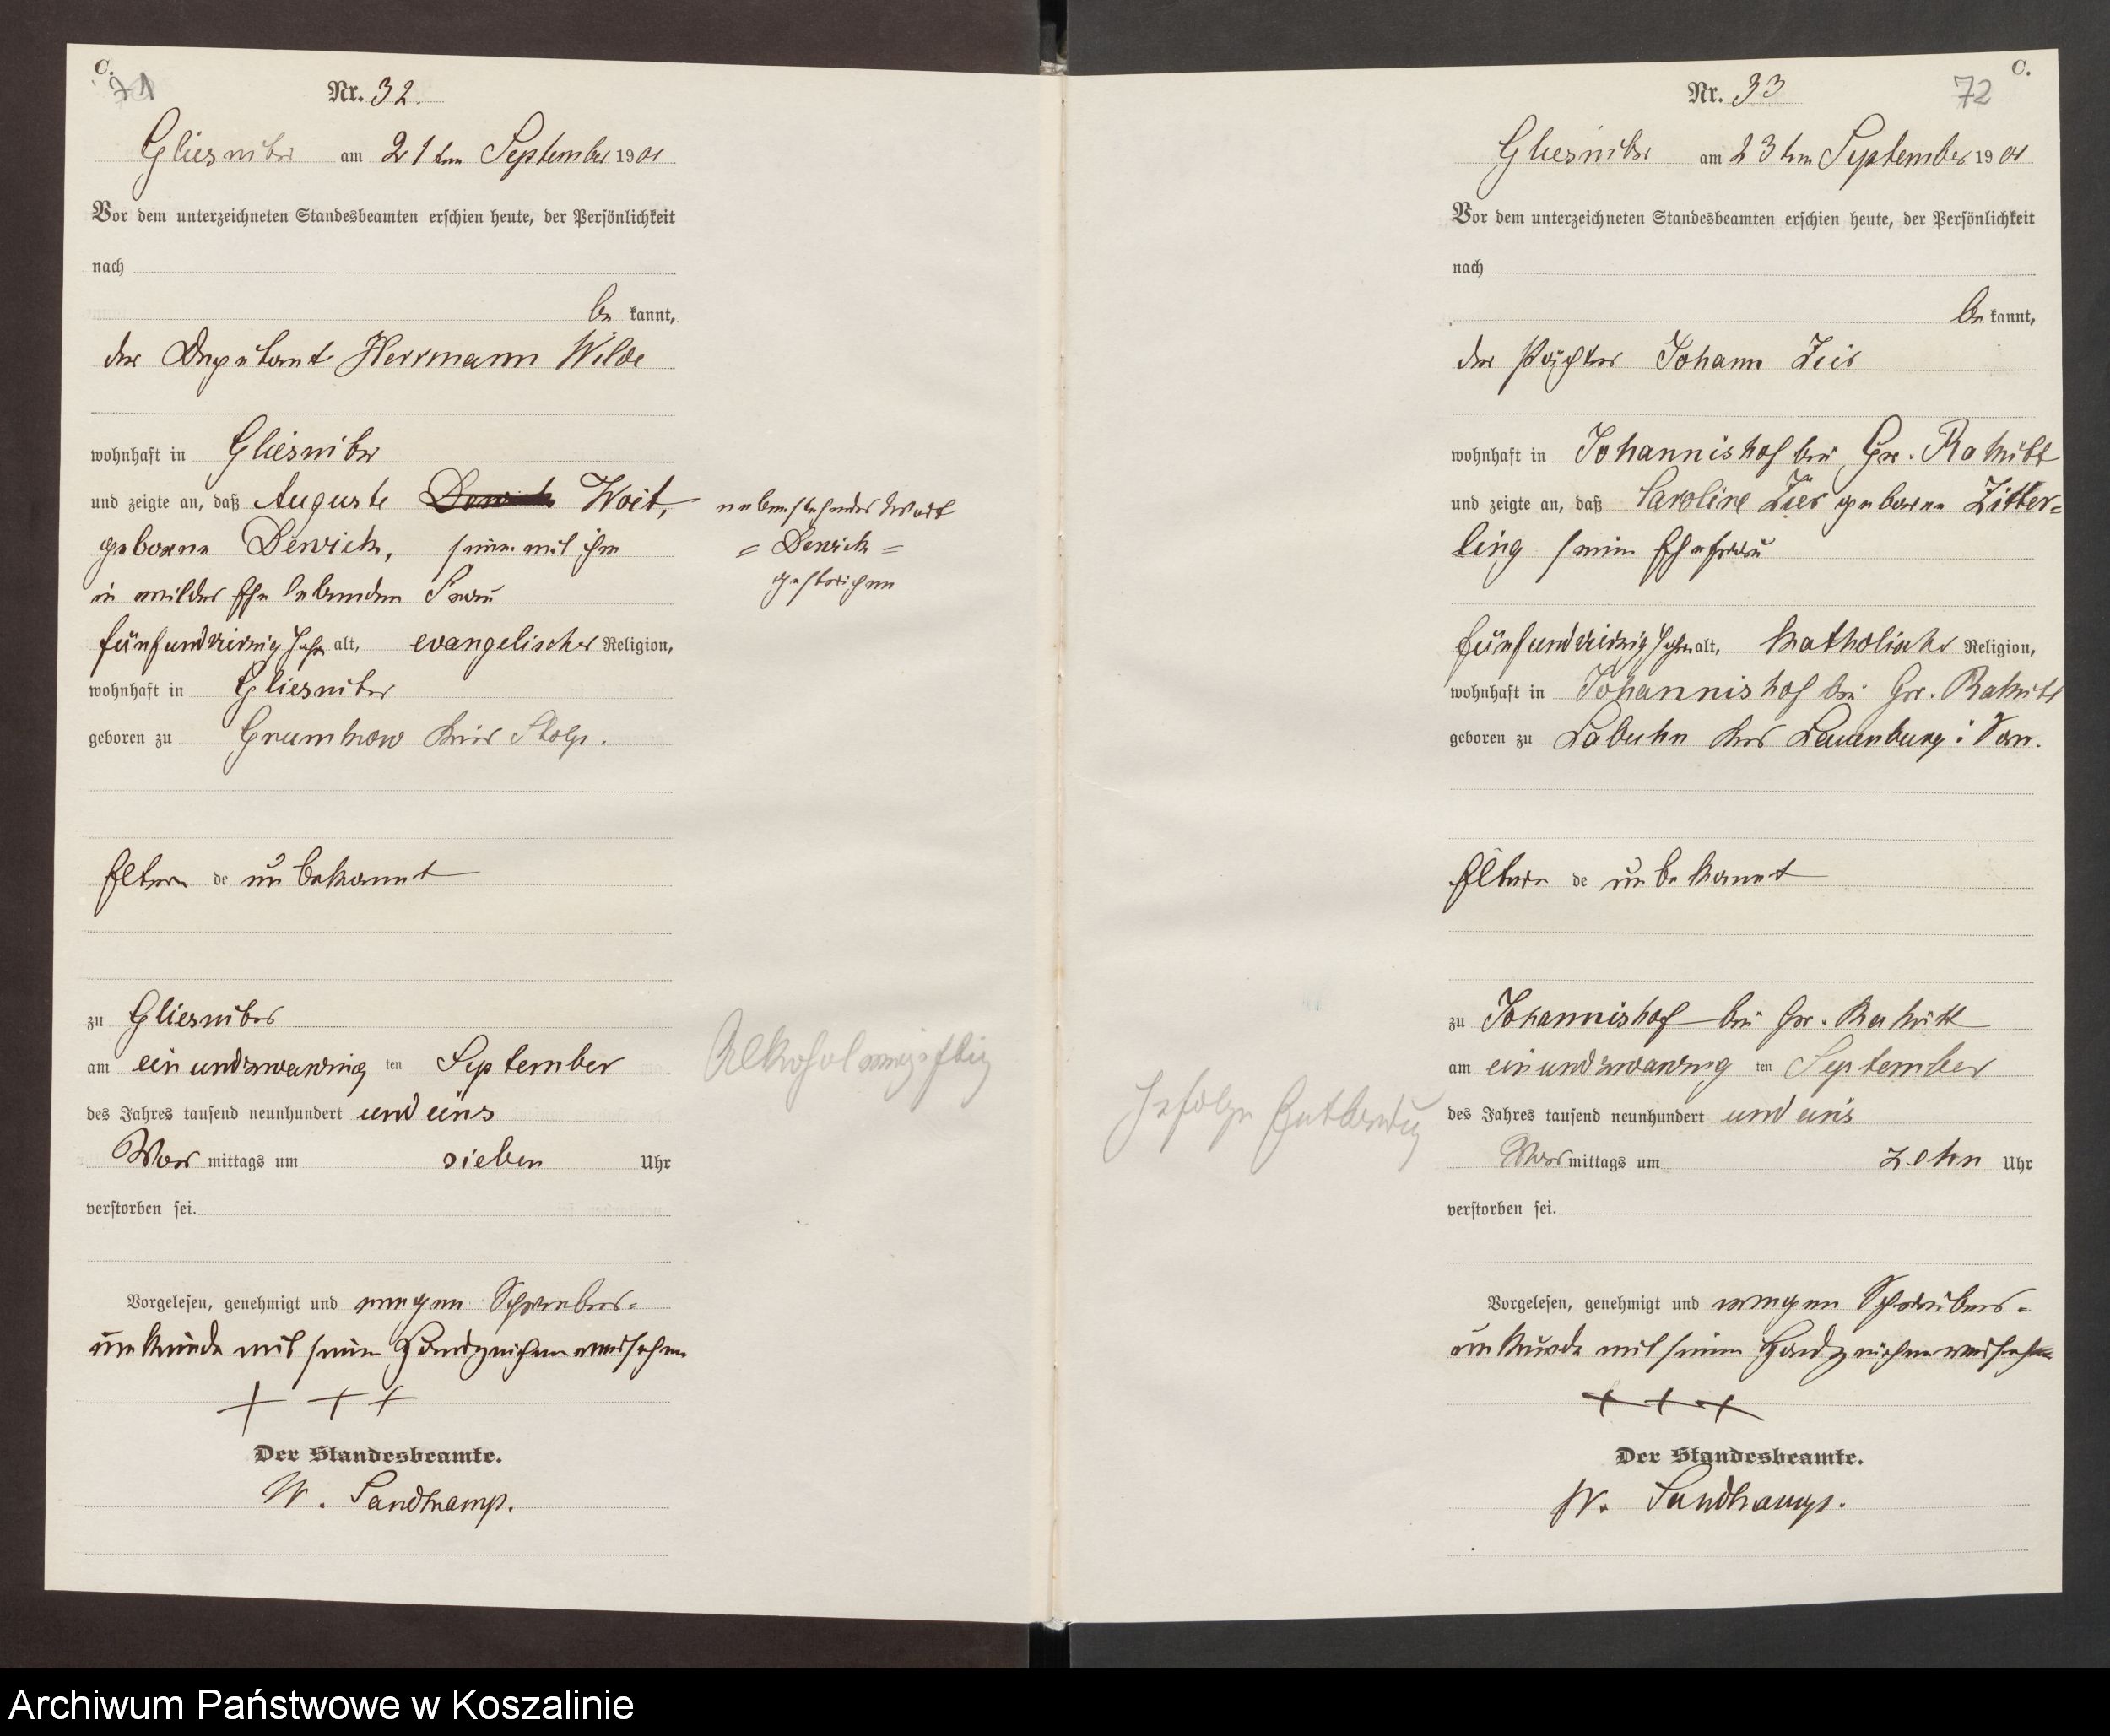 C.
71
Nr. 32.
Gliesnitz am 21ten September 1901
Vor dem unterzeichneten Standesbeamten erschien heute, der Persönlichkeit
nach
be kannt,
der Deputant Herrmann Wilde
wohnhaft in Gliesnitz
und zeigte an, daß Auguste Dewich Woit,
geborene Dewich, seine mit ihm
in wilder Ehe lebenden Frau
fünfundvierzig Jahre alt, evangelischer Religion,
wohnhaft in Gliesnitz
geboren zu Grumkow Kreis Stolp.
Eltern de unbekannt
zu Gliesnitz
am einundzwanzig ten September
des Jahres tausend neunhundert und eins
Vor mittags um sieben Uhr
verstorben sei.
Vorgelesen, genehmigt und wegen Schreibens-
unkunde mit seinem Handzeichen versehen
+ + +
Der Standesbeamte.
W. Sandkamp.
nebenstehendes Wort
= Dewich =
gestrichen
Alkoholvergiftung
C.
72
Nr. 33
Gliesnitz am 23ten September 1901
Vor dem unterzeichneten Standesbeamten erschien heute, der Persönlichkeit
nach
be kannt,
der Pächter Johann
wohnhaft in Johannishof bei Gr. Rakitt
und zeigte an, daß Caroline geborene Zitter=
ling seine Ehefrau
fünfundvierzig Jahre alt, katholischer Religion,
wohnhaft in Johannishof bei Gr. Rakitt
geboren zu Labuhn Kreis Lauenburg i. Pom.
Eltern de unbekannt
zu Johannishof bei Gr. Rakitt
am einundzwanzig ten September
des Jahres tausend neunhundert und eins
Vor mittags um zehn Uhr
verstorben sei.
Vorgelesen, genehmigt und wegen Schreibens-
unkunde mit seinem Handzeichen versehen
+ + +
Der Standesbeamte.
W. Sandkamp.
Infolge Entbindung
Archiwum Państwowe w Koszalinie